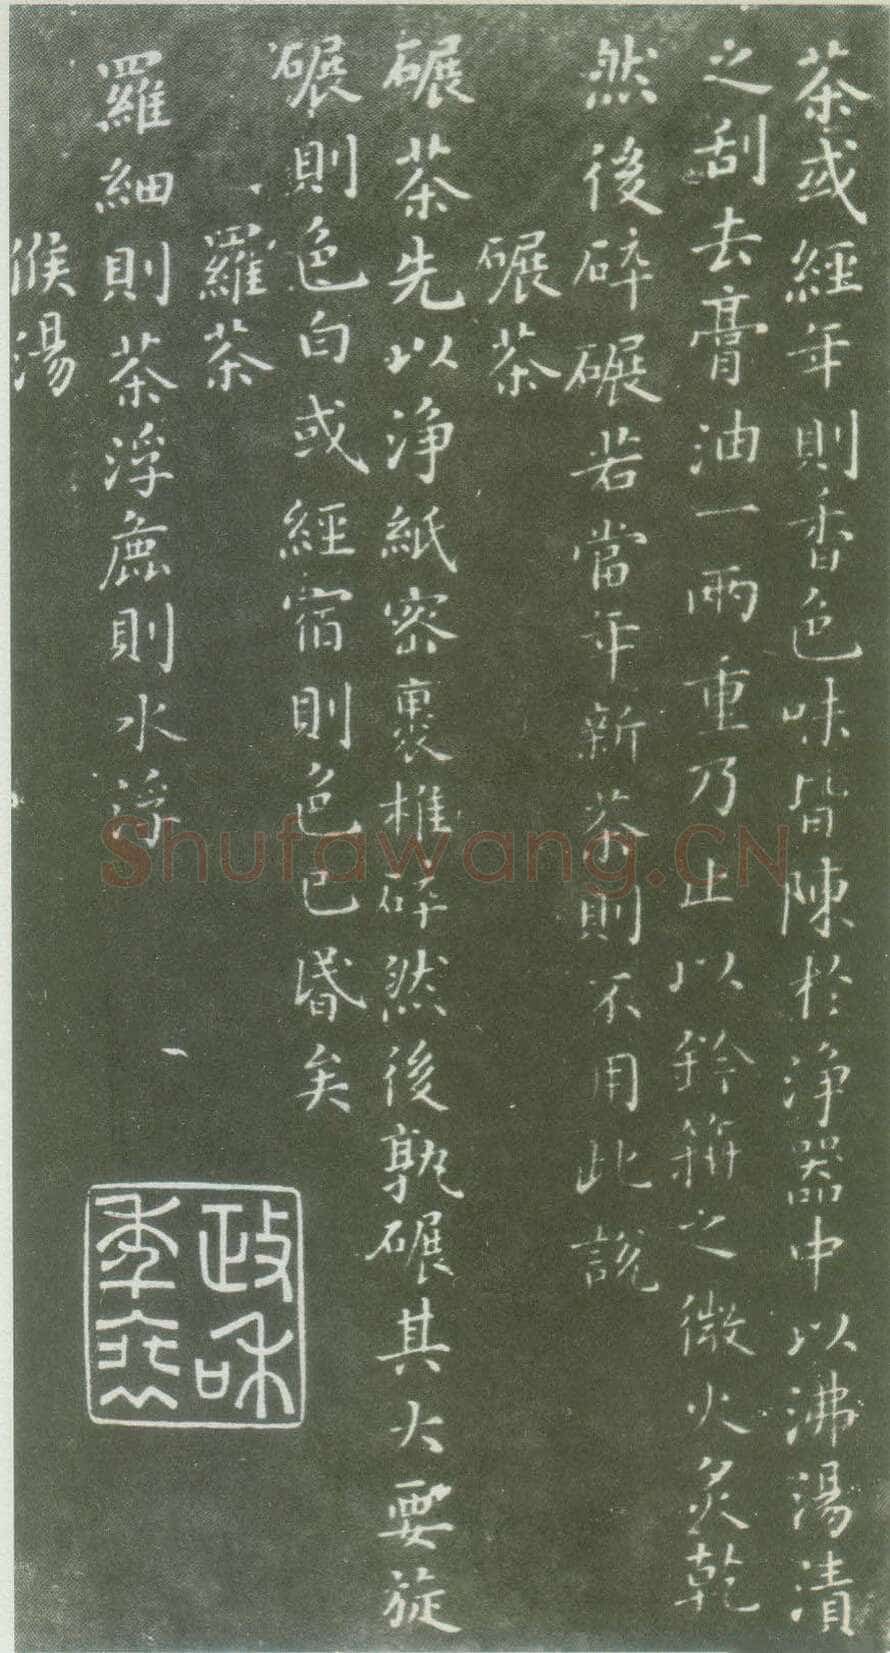 茶或經年則香色味皆陳於淨器中以沸湯漬
之刮去膏油一兩重乃止以鈐箝之微火炙乾
然後碎碾若當年新茶則不用此說
碾茶
碾茶先以淨紙密裹椎碎然後孰碾其大要旋
碾則色白或經宿則色已昬矣
羅茶
羅細則茶浮麁則水浮
候湯
政和
Shufawang.CN